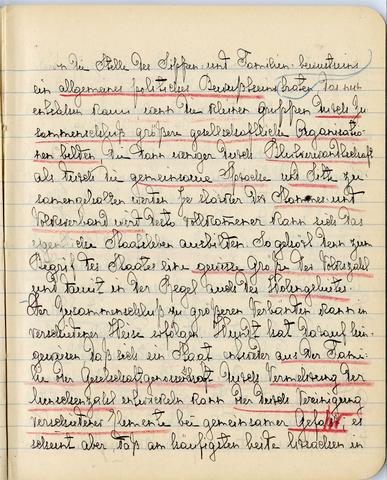 an die Stelle des Sippen- und Familien-bewusstseins
ein allgemeines politisches Bewusstsein treten das nur
entstehen kann wenn die kleinen Gruppen durch Zu
sammenschluß größere gesellschaftliche Organisatio-
nen bilden die dann weniger durch Blutsverwandtschaft
als durch die gemeinsame Sprache und Sitte zu-
sammengehalten werden je stärker der Stammes- und
Volksverband wird desto vollkommener kann sich das
eigentliche Staatsleben ausbilden. So gehört denn zum
Begriff des Staates eine gewisse Größe der Volkszahl
und damit in der Regel auch des Wohngebietes.
Der Zusammenschluß zu größeren Verbänden kann in
verschiedener Weise erfolgen. Wundt hat darauf hin-
gewiesen daß sich ein Staat entweder aus der Fami-
lie der Geschlechtgenossenschaft durch Vermehrung der
Menschenzahl entwickeln kann oder durch Vereinigung
verschiedener Elemente bei gemeinsamer Gefahr; es
scheint aber, daß am häufigsten beide Ursachen in